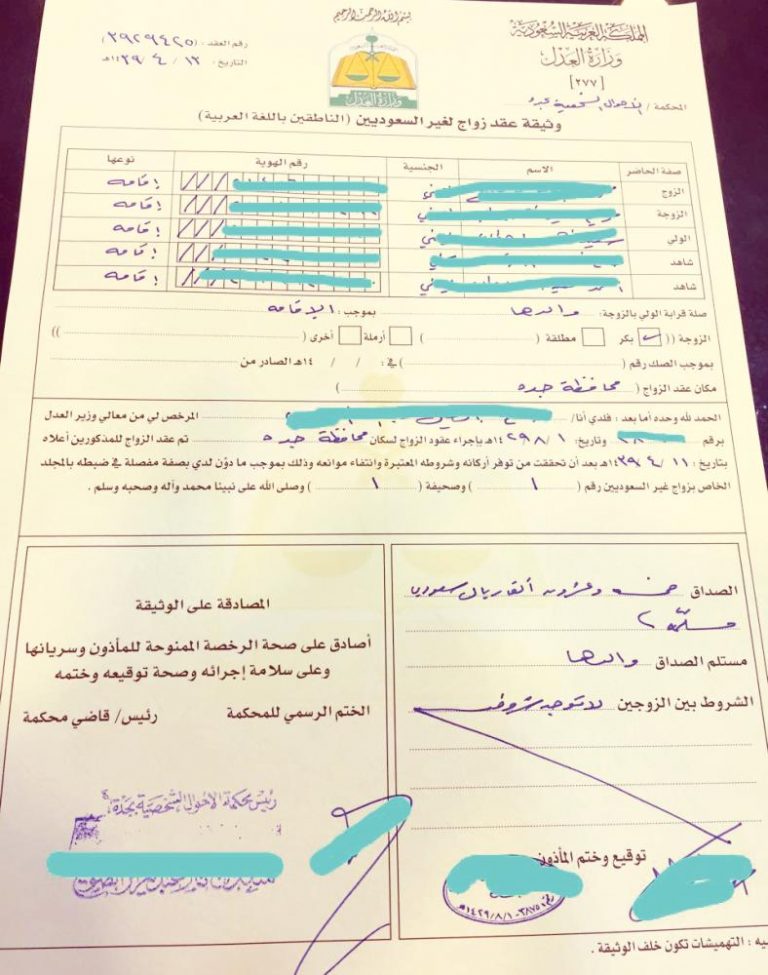 بسم الله الرحمن الرحيم
المملكة العربية السعودية
وزارة العدل
[٢٧٧]
المحكمة / الأحوال الشخصية بجدة
رقم العقد : (٣٩٢٩٤٢٥)
التاريخ : ١٢ / ٤ / ١٤٣٩هـ
وزارة العدل
وثيقة عقد زواج لغير السعوديين (الناطقين باللغة العربية)
صفة الحاضر الاسم الجنسية رقم الهوية نوعها
الزوج إقامه
الزوجة إقامه
الولي إقامه
شاهد إقامه
شاهد إقامه
صلة قرابة الولي بالزوجة: والدها بموجب : الإقامه
الزوجة (( بكر مطلقة ( ) أرملة أخرى ( ))
بموجب الصك رقم ( ) في : / / ١٤هـ الصادر من
مكان عقد الزواج ( محافظة جده )
الحمد لله وحده أما بعد : فلدي أنا/ المرخص لي من معالي وزير العدل
برقم وتاريخ: ١ /٨ /١٤٢٩هـ بإجراء عقود الزواج لسكان محافظة جده تم عقد الزواج للمذكورين أعلاه
بتاريخ : ١١ /٤ /١٤٣٩هـ بعد أن تحققت من توفر أركانه وشروطه المعتبرة وانتفاء موانعه وذلك بموجب ما دوّن لدي بصفة مفصلة في ضبطه بالمجلد
الخاص بزواج غير السعوديين رقم ( ١ ) وصحيفة ( ١ ) وصلى الله على نبينا محمد وآله وصحبه وسلم .
الصداق خمسه وعشرون ألف ريال سعودي
مسلّمة
مستلم الصداق والدها
الشروط بين الزوجين لا توجد شروط
توقيع وختم المأذون
١٤٢٩/٨/١هـ
المصادقة على الوثيقة
أصادق على صحة الرخصة الممنوحة للمأذون وسريانها
وعلى سلامة إجرائه وصحة توقيعه وختمه
الختم الرسمي للمحكمة رئيس/ قاضي محكمة
رئيس محكمة الأحوال الشخصية بجدة
يه : التهميشات تكون خلف الوثيقة .